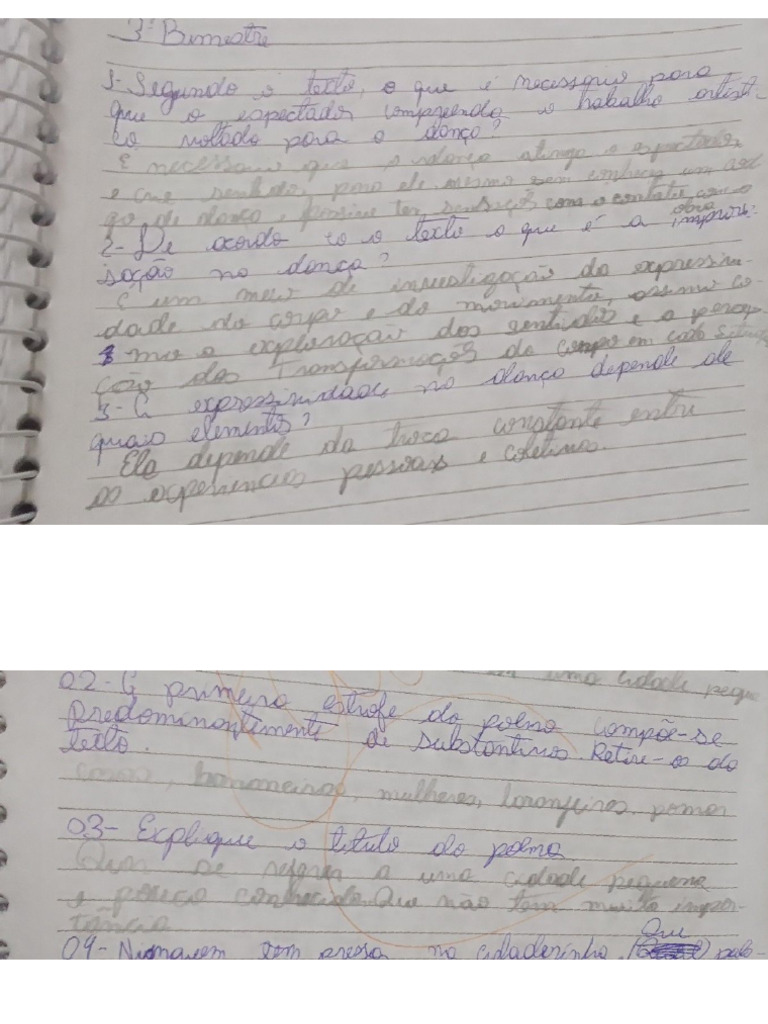 3º Bimestre
1- Segundo o texto, o que é necessario para
que o espectador compreenda o trabalho artist
co voltado para a dança?
É necessario que a dança atinga o espectador
e crie sentido, para ele mesmo sem conhecer um
go de dança e possive ter sensaçõs com o contato com a
obra
2- De acordo co o texto o que é a improvi-
sação na dança?
É um meio de investigação da expressivi-
dade do corpo e do movimento, assim co
mo a exploração dos sentidos e a percep
ção das transformaçõs do campo em cada
3- A expressividade na dança depende de
quais elementos?
Ela depende da troca constante entre
as experiencias pessoais e coletivas.
uma cidade peque
02- A primeira estrofe do poema compõe-se
predominantimente de substantivos. Retire-os do
texto.
casas, bananeiras, mulheres, laranjeiras, pomar
03- Explique o titulo do poema
Quer se referir a uma cidade pequena
e pouco conhecida. Que não tem muita impor-
tância
Que
04- Ninguem tem pressa na cidadezinha. pala-